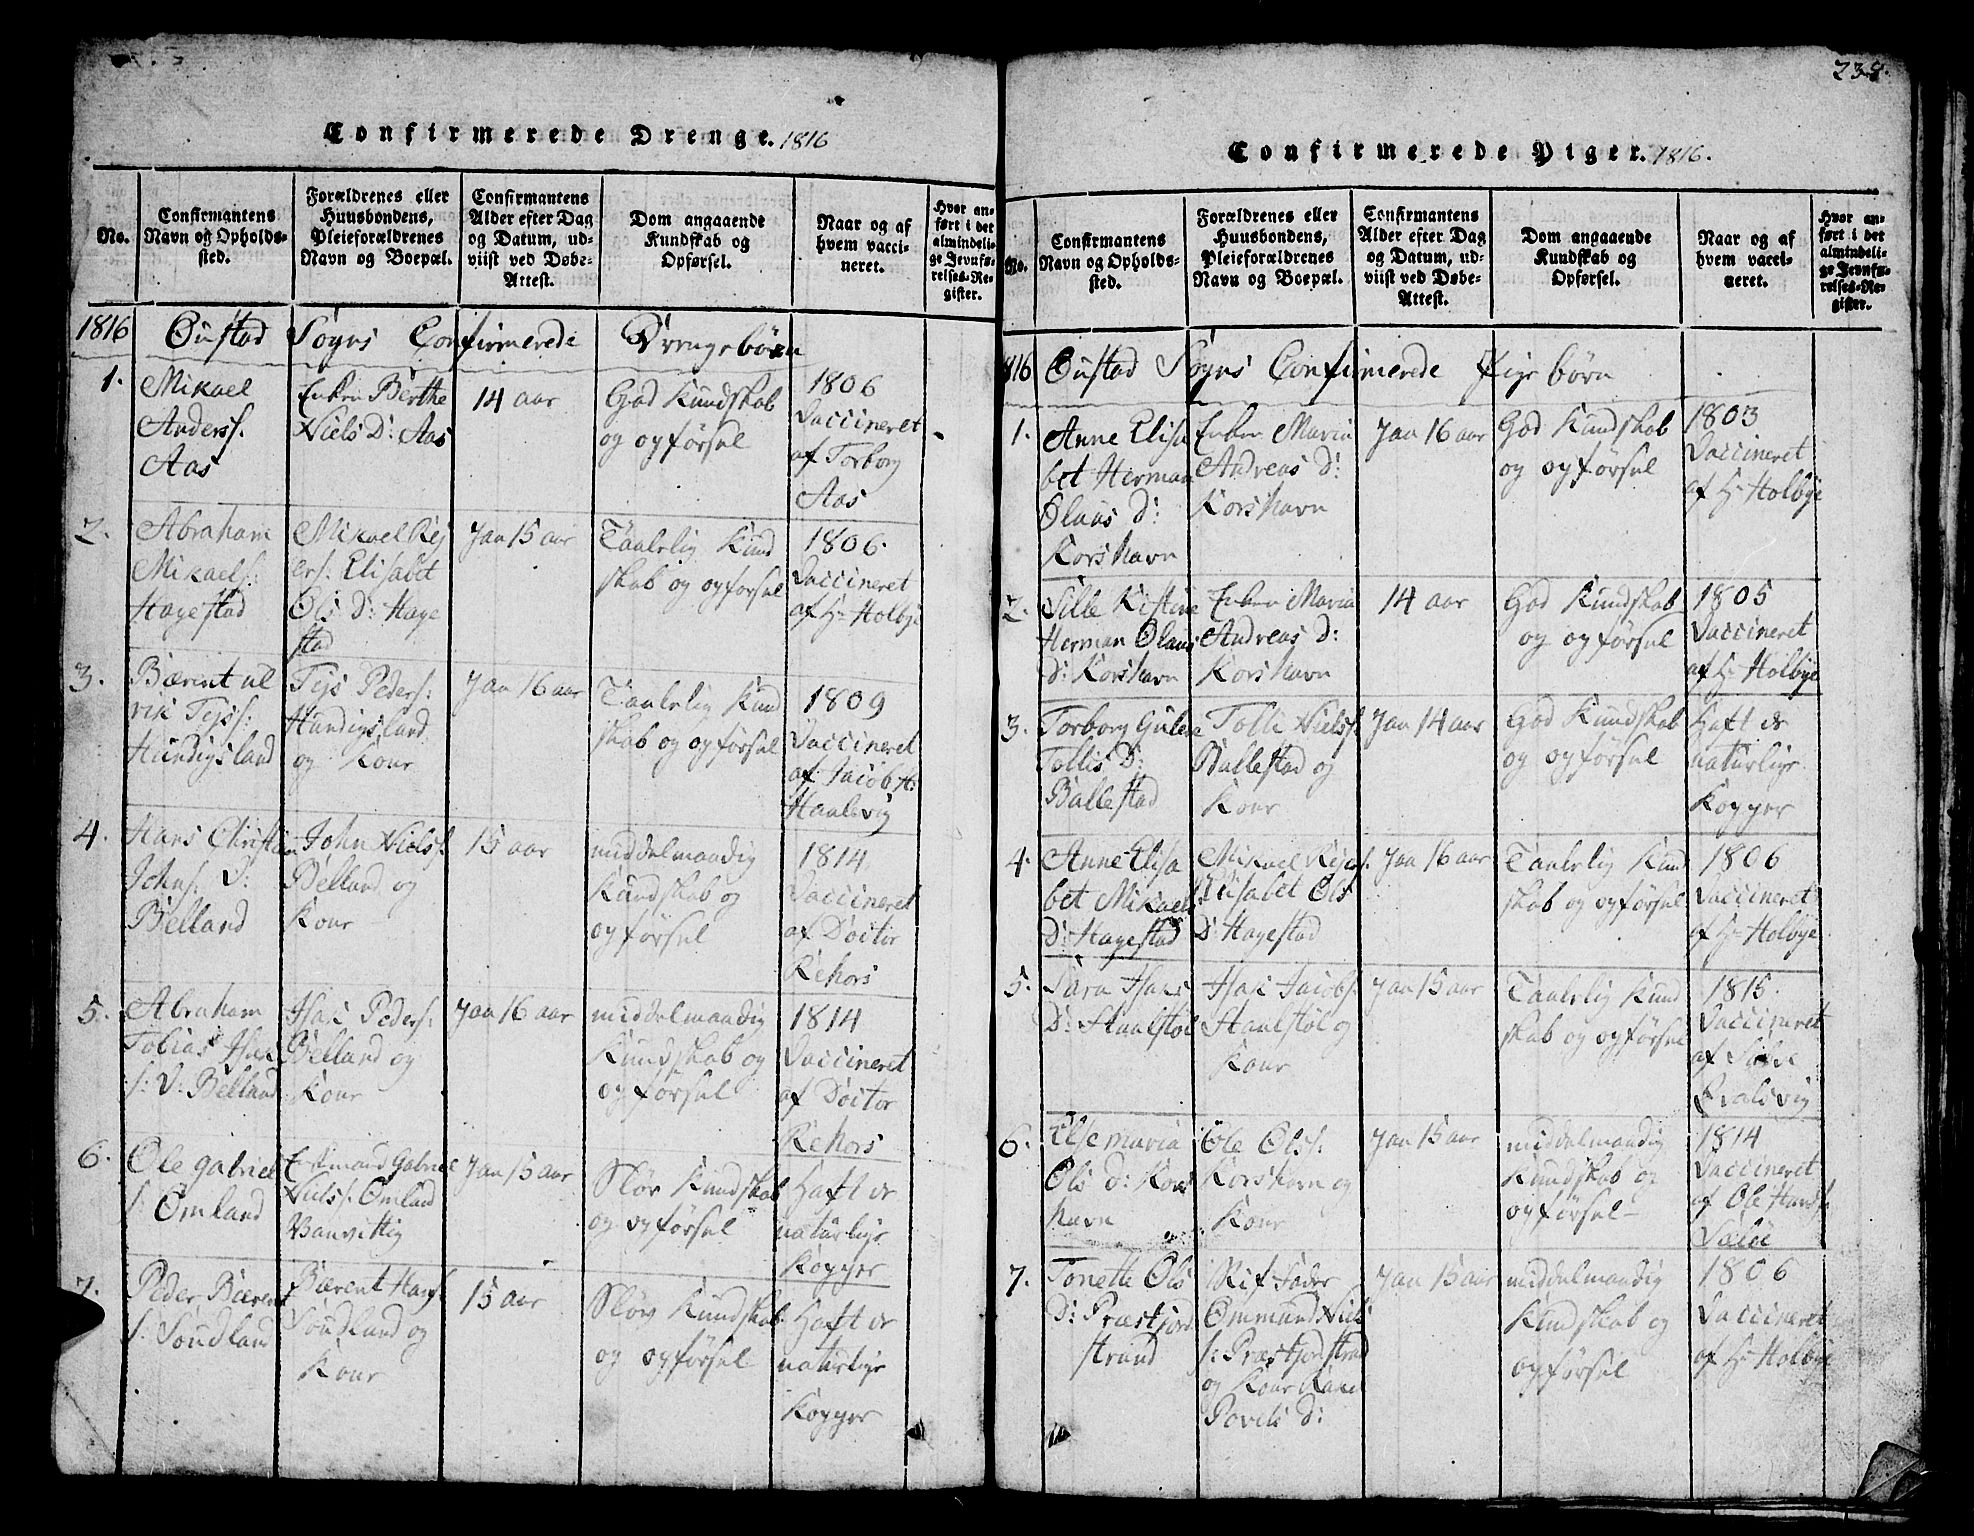 238.
Confirmerede Drenge. 1816
No.
Confirmantens
Navn og Opholds-
sted.
Forældrenes eller
Huusbondens,
Pleieforældrenes
Navn og Boepæl.
Confirmantens
Alder efter Dag
og Datum, ud-
viist ved Døbe-
Attest.
Dom angaaende
Kundskab og
Opførsel.
Naar og af
hvem vacci-
neret.
Hvor an-
ført i det
almindeli-
ge Jevnfø-
relses-Re-
gister.
1816 Oustad Sogns Confirmerede Drengebörn
1.
Mikael
Anders s.
Aas
Enken Berthe
Niels D: Aas
14 aar
God Kundskab
og opförsel
1806
Vaccineret
af Torborg
Aas
2.
Abraham
Mikaels:
Hagestad
Mikael Rej
ers. Elisabet
Ols D: Hage
stad
Jan 15 aar
Taalelig Kund
skab og opförsel
1806.
Vaccineret
af Hr Holbye
3.
Bærent ul
rik Tejs s:
Hundigsland
Tejs Peders:
Hundigsland
og Kone
Jan 16 aar
Taalelig Kund
skab og opförsel
1809
Vaccineret
af Jacob H:
Haalevig
4.
Hans Christian
Johns. D:
Belland
John Niels s.
Belland og
Kone
15 aar
middelmaadig
Kundskab og
opförsel
1814
Vaccineret
af Doctor
Rehors
5.
Abraham
Tobias Isak
s: D: Belland
Isac Peders:
Belland og
Kone
Jan 16 aar
middelmaadig
Kundskab og
opförsel
1814
Vaccineret
af Doctor
Rehors
6.
Ole gabriel
s: Omland
Gabriel
Niels s. Omland
Vanvittig
Jan 15 aar
Slöv Kundskab
og opförsel
Haft de
naturlige
Kopper
7.
Peder Bærent
s: Soudland
Bærent Hans s.
Soudland og
Kone
15 aar
Slöv Kundskab
og opförsel
Haft de
naturlige
Kopper
Confirmerede Piger. 1816.
No.
Confirmantens
Navn og Opholds-
sted.
Forældrenes eller
Huusbondens,
Pleieforældrenes
Navn og Boepæl.
Confirmantens
Alder efter Dag
og Datum, ud-
viist ved Døbe-
Attest.
Dom angaaende
Kundskab og
Opførsel.
Naar og af
hvem vacci-
neret.
Hvor an-
ført i det
almindeli-
ge Jevnfø-
relses-Re-
gister.
816 Oustad Sogns Confirmerede Pige börn
1.
Anne Elisa
bet Herman
Olaus D:
Korshavn
Enken Maria
Andreas D:
Korshavn
Jan 16 aar
God Kundskab
og opförsel
1803
Vaccineret
af Hr Holbye
2.
Sille Kistine
Herman Olaus
D: Korshavn
Enken Maria
Andreas D:
Korshavn
14 aar
God Kundskab
og opförsel
1805
Vaccineret
af Hr Holbye
3.
Torborg Gulene
Tollis D:
Ballestad
Tolle Niels s.
Ballestad og
Kone
Jan 14 aar
God Kundskab
og opförsel
Haft de
naturlige
Kopper
4.
Anne Elisa
bet Mikaels
D: Hagestad
Mikael Rejers.
Elisabet Ols
D: Hagestad
Jan 16 aar
Taalelig Kund
skab og opförsel
1806
Vaccineret
af Hr Holbye
5.
Sara Isacs
D: Staalstöl
Isac Jacobs.
Staalstöl og
Kone
Jan 15 aar
Taalelig Kund
skab og opförsel
1815.
Vaccineret
af
6.
Else maria
Ols D: Kors
havn
Ole Ols s.
Korshavn og
Kone
Jan 15 aar
middelmaadig
Kundskab og
opförsel
1814
Vaccineret
af Ole Hans s.
7.
Tonette Ols
D: Præstfjord
strand
Stif Fader
Ommund Niels
s: Præstfjordstrand
og Kone
Povels D:
Jan 15 aar
middelmaadig
Kundskab og
opförsel
1806
Vaccineret
af Hr Holbye